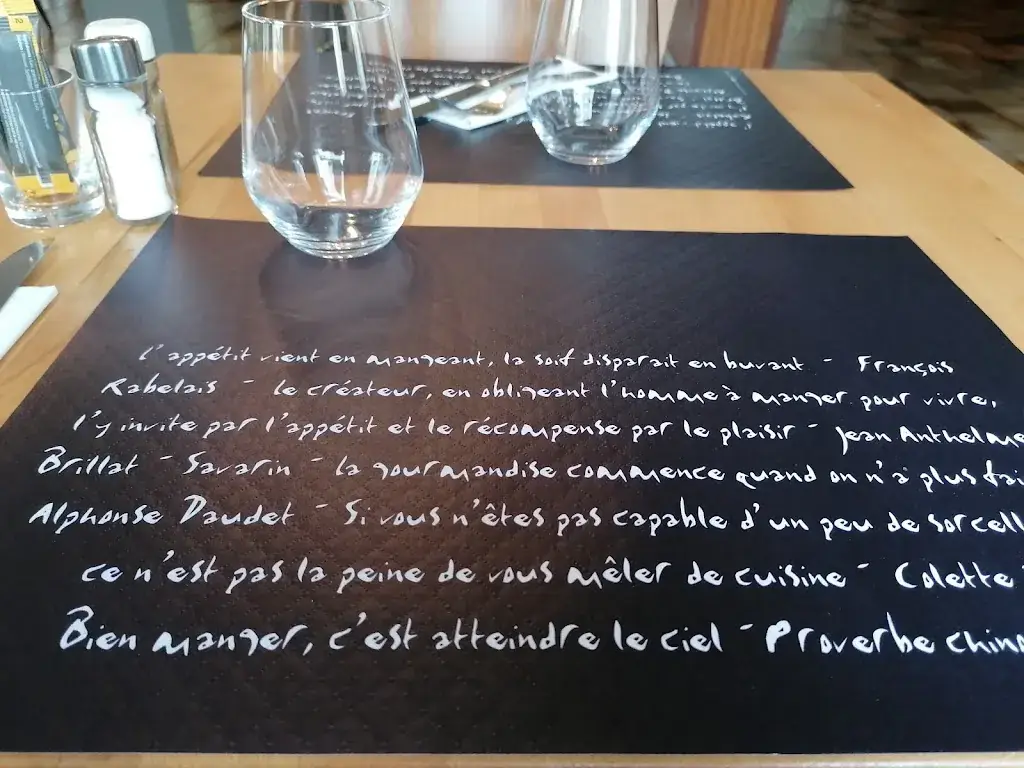 l'appétit vient en mangeant, la soif disparait en buvant - François
Rabelais - le créateur, en obligeant l'homme à manger pour vivre,
l'y invite par l'appétit et le récompense par le plaisir - Jean Anthelme
Brillat - Savarin - la gourmandise commence quand on n'a plus fai
Alphonse Daudet - Si vous n'êtes pas capable d'un peu de sorcell
ce n'est pas la peine de vous mêler de cuisine - Colette -
Bien manger, c'est atteindre le ciel - Proverbe chino